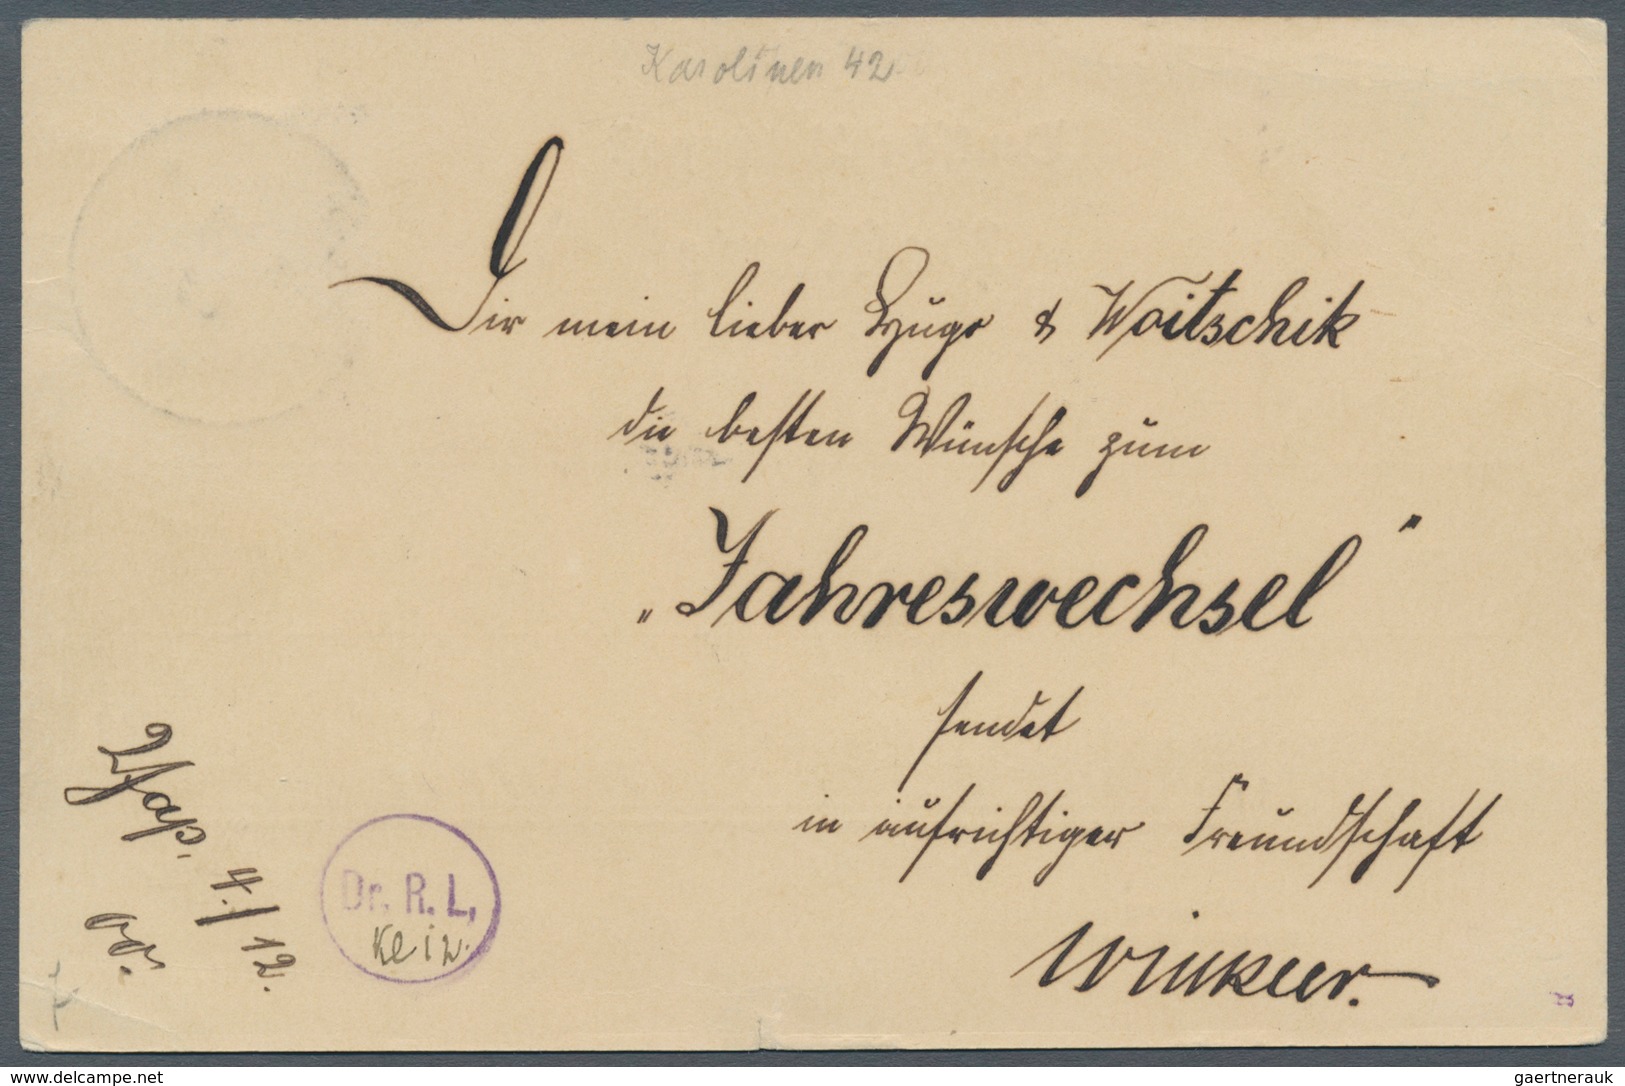 Karolinen 42
Dir mein lieber Hugo & Woitschik
die besten Wünsche zum
„Jahreswechsel"
sendet
in aufrichtiger Freundschaft
Winkler.
Yap. 4./12.
00.
Dr. R. L.
www.delcampe.net
gaertnerauk